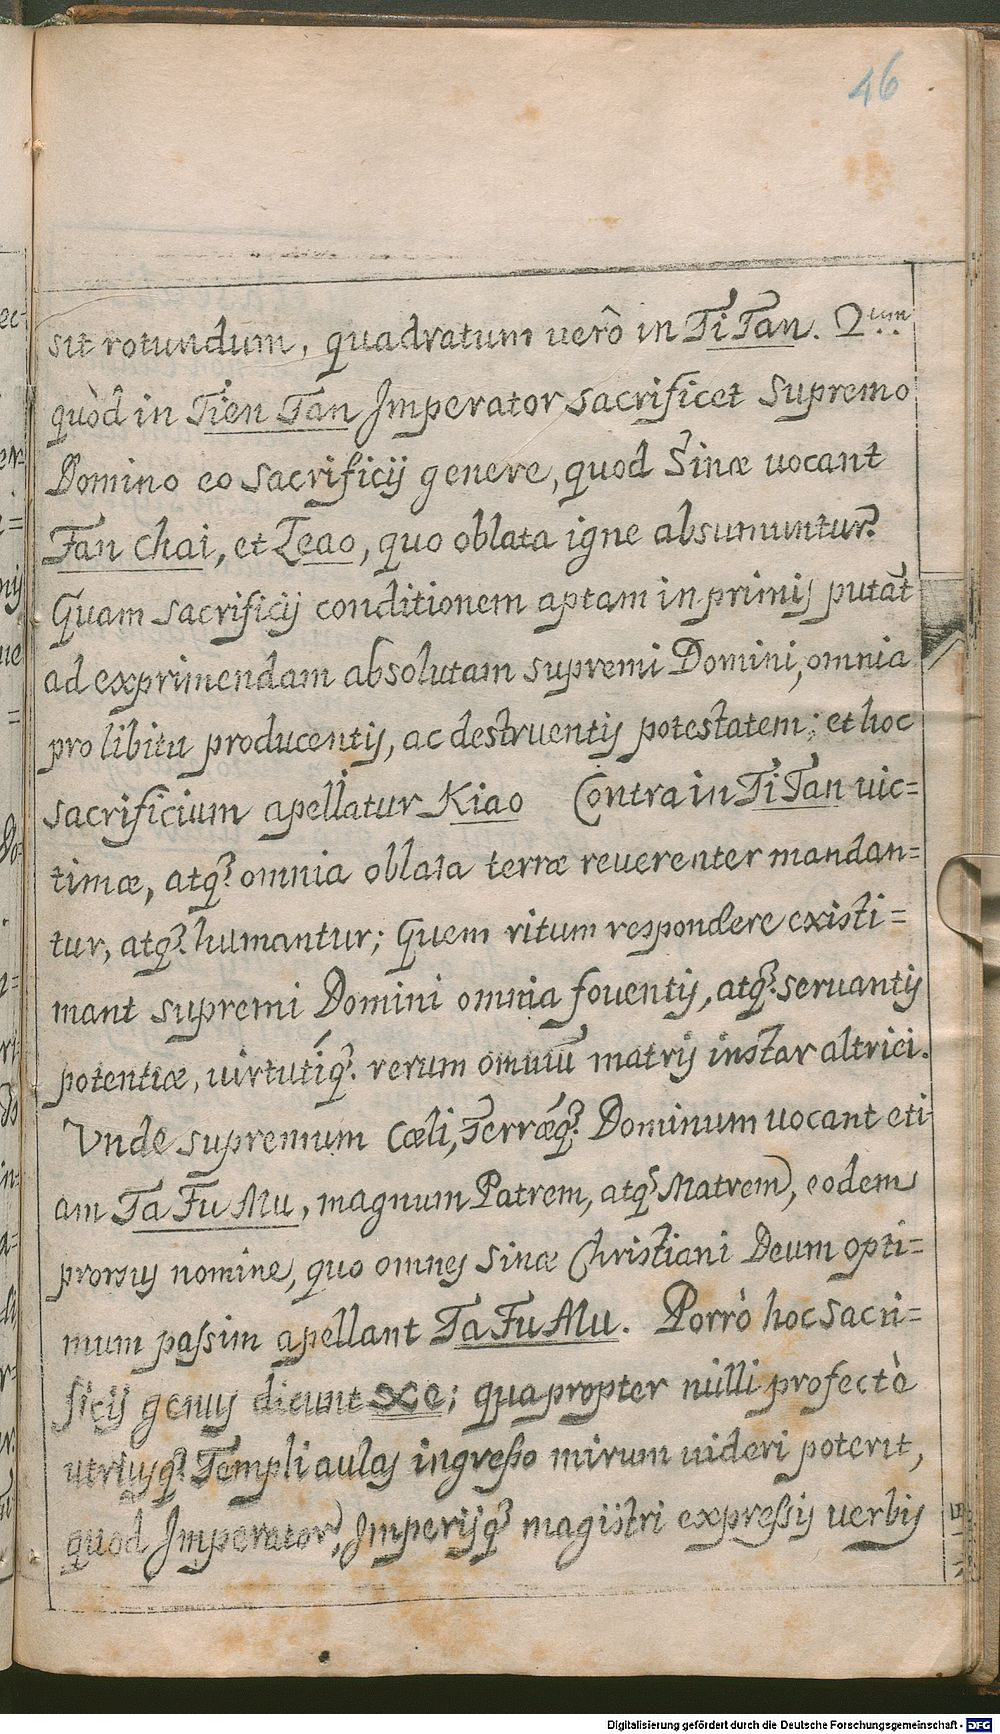 46
sit rotundum, quadratum verò in Ti Tan. 2.um
quòd in Tien Tan Imperator sacrificet Supremo
Domino eo sacrificij genere, quod Sinæ uocant
Fan chai, et Leao, quo oblata igne absumuntur?
Quam sacrificij conditionem aptam in primis putãt
ad exprimendam absolutam supremi Domini, omnia
pro libitu producentis, ac destruentis potestatem; et hoc
sacrificium apellatur Kiao Contra in Ti Tan vic=
timæ, atq̃ omnia oblata terræ reuerenter mandan=
tur, atq̃ humantur; Quem ritum respondere existi=
mant supremi Domini omnia fouentis, atq̃ seruantis
potentiæ, uirtutíq̃ rerum omniũ matris instar altrici.
Vnde supremum Cæli, Terræq̃ Dominum uocant eti
am Ta Fu Mu, magnum Patrem, atq̃ Matrem, eodem
prorsus nomine, quo omnes Sinæ Christiani Deum opti=
mum passim apellant Ta Fu Mu. Porrò hoc sacri=
ficij genus dicunt Xe; quapropter nulli profectò
utriusq̃ Templi aulas ingresso mirum uideri poterit,
quod Imperator, Imperijq̃ magistri expressis uerbis
Digitalisierung gefördert durch die Deutsche Forschungsgemeinschaft - DFG